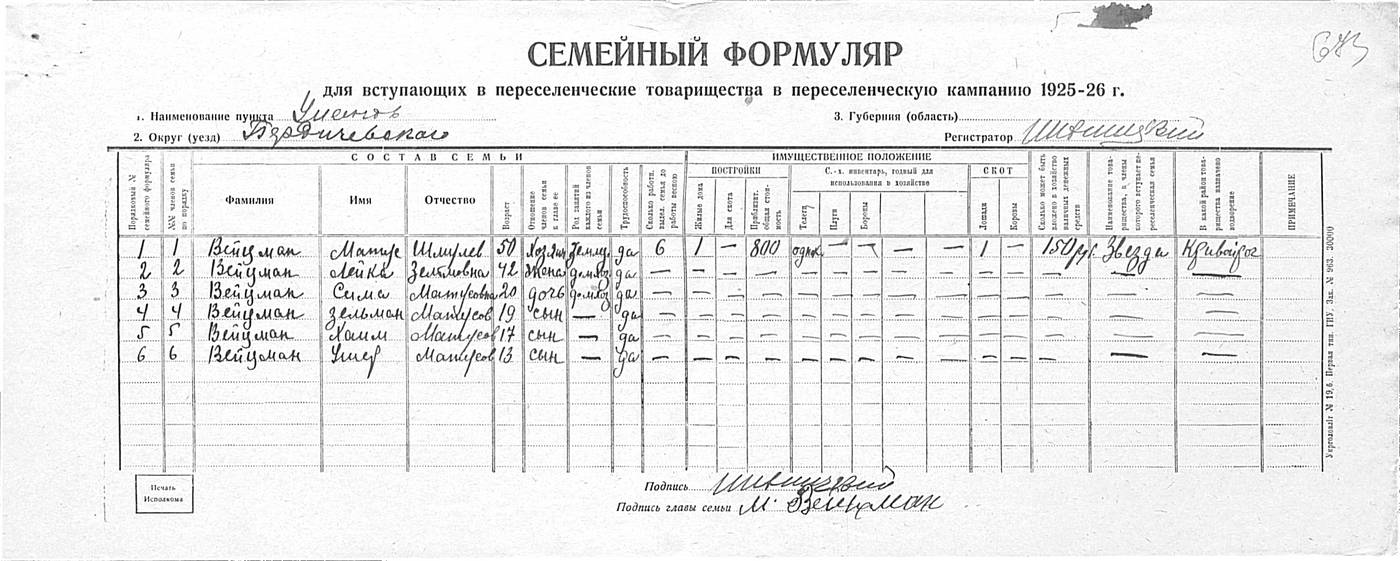 673
СЕМЕЙНЫЙ ФОРМУЛЯР
для вступающих в переселенческие товарищества в переселенческую кампанию 1925-26 г.
1. Наименование пункта
3. Губерния (область)
2. Округ (уезд) Бердичевского
Регистратор
СОСТАВ СЕМЬИ
ИМУЩЕСТВЕННОЕ ПОЛОЖЕНИЕ
ПОСТРОЙКИ
С.-х. инвентарь, годный для использования в хозяйстве
СКОТ
Порядковый № семейного формуляра
№№ членов семьи по порядку
Фамилия
Имя
Отчество
Возраст
Отношение членов семьи к главе ее
Род занятий каждого из членов семьи
Трудоспособность
Сколько работн. выдел. семья до работы весною
Жилые дома
Для скота
Приблизит. общая стоимость
Телеги
Плуги
Бороны
Лошади
Коровы
Сколько может быть вложено в хозяйство наличных денежных средств
Наименование товарищества, в члены которого вступает переселенческая семья
В какой район товарищества назначено водворение
ПРИМЕЧАНИЕ
1 1 Вейцман Матус Шмулев 50 хозяин землед. да 6 1 — 800 одна — — — — 1 — 150 руб. Звезда
2 2 Вейцман Лейка 42 жена домхоз да — — — — — — — — — — — — — —
3 3 Вейцман Сима Матусовна 20 дочь домхоз да — — — — — — — — — — — — — —
4 4 Вейцман Зельман Матусов 19 сын — да — — — — — — — — — — — — — —
5 5 Вейцман Хаим Матусов 17 сын — да — — — — — — — — — — — — — —
6 6 Вейцман Ушер Матусов 13 сын — да — — — — — — — — — — — — — —
Печать Исполкома
Подпись
Подпись главы семьи М. Вейцман
Укрголовліт № 19,6. Первая тип. ГПУ. Зак. № 963. 30000